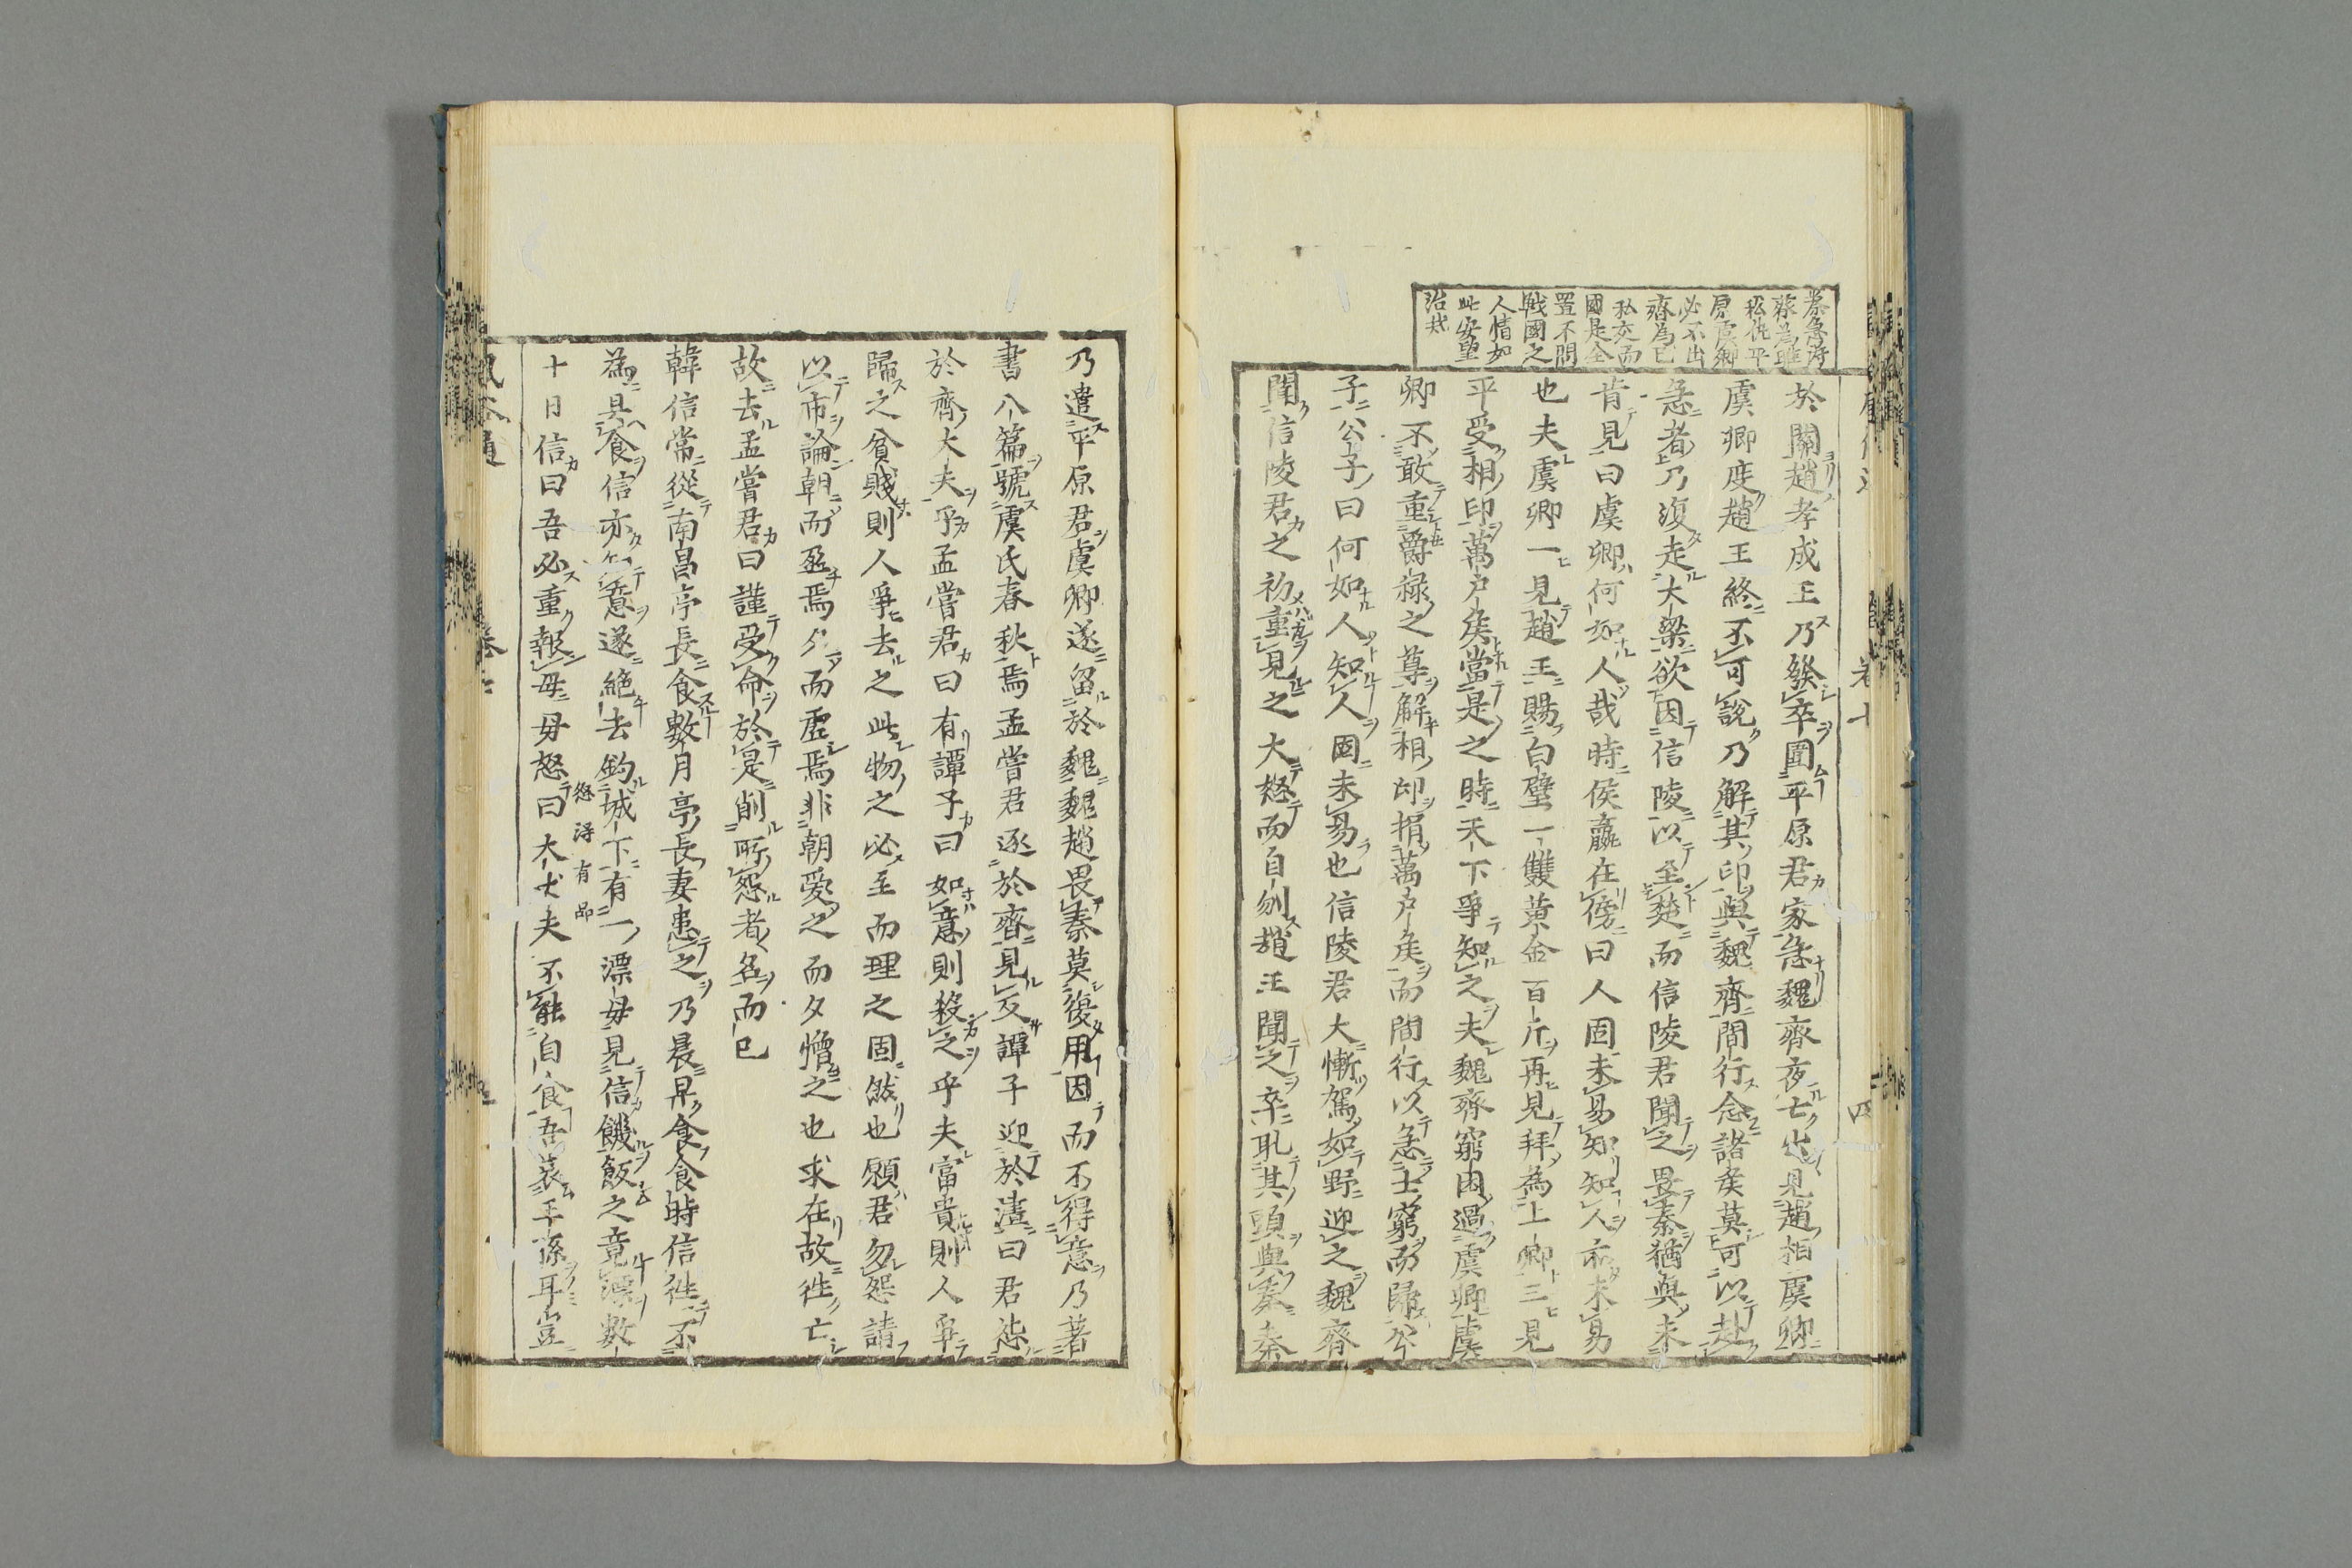 秦急得
蔡為雎
私仇平
原虞卿
必不出
齊為已
私交而
國是全
置不問
戰國之
人情如
此安望
治哉
於關趙孝成王乃發卒圍平原君家急魏齊夜亡出見趙相虞卿
虞卿度趙王終不可說乃解其印與魏齊間行念諸矦莫可以赴
急者乃復走大梁欲因信陵以至楚而信陵君聞之畏秦猶與未
肯見曰虞卿何如人哉時侯嬴在傍曰人固未易知知人亦未易
也夫虞卿一見趙王賜白璧一雙黃金百斤再見拜為上卿三見
平受相印萬戶矦當是之時天下爭知之夫魏齊窮困過虞卿虞
卿不敢重爵祿之尊解相印捐萬戶矦而間行以急士窮而歸公
子公子曰何如人知人固未易也信陵君大慚駕如野迎之魏齊
聞信陵君之初重見之大怒而自刎趙王聞之卒取其頭與秦秦
卷七
四
乃遣平原君虞卿遂留於魏魏趙畏秦莫復用因而不得意乃著
書八篇號虞氏春秋焉孟嘗君逐於齊見反譚子迎於澅曰君怨
於齊大夫乎孟嘗君曰有譚子曰如意則殺之乎夫富貴則人爭
歸之貧賤則人爭去之此物之必至而理之固然也願君勿怨請
以市論朝而盈焉夕而虛焉非朝愛之而夕憎之也求在故徃亡
故去孟嘗君曰謹受命於是削所怨者名而已
韓信常從南昌亭長食數月亭長妻患之乃晨早食食時信徃不
為具食信亦知意遂絕去釣城下有一漂母見信饑飯之竟漂數
十日信曰吾必重報母母怒曰大丈夫不能自食吾哀王孫耳豈